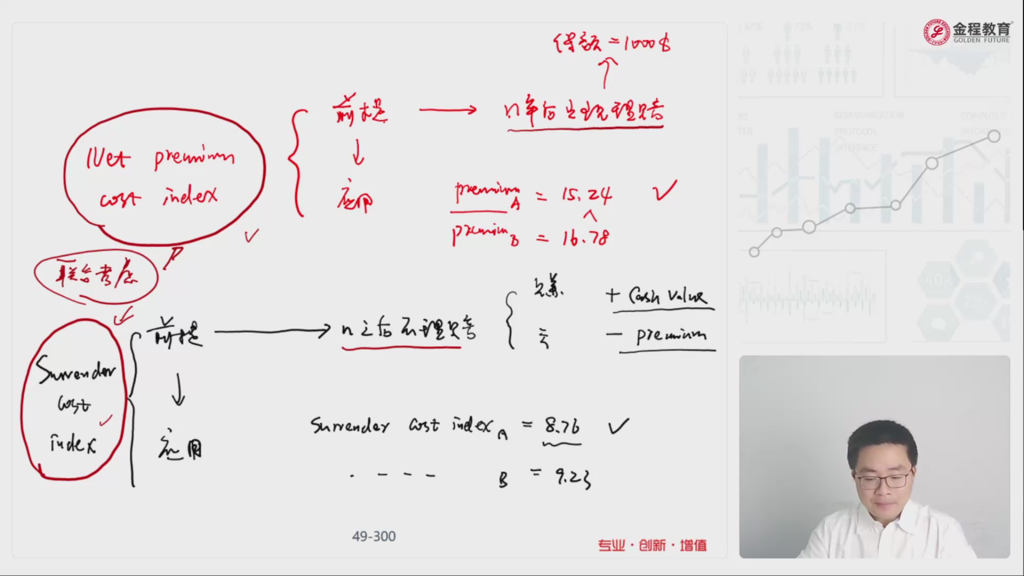 金程教育
GOLDEN FUTURE
保额 = 1000$
前提
n年后出现理赔
Net premium
cost index
应用
premium A = 15.24
premium B = 16.78
联合考虑
前提
n年后不理赔
+ Cash Value
- premium
Surrender
cost
index
应用
Surrender cost index A = 8.76
B = 9.23
49-300
专业·创新·增值